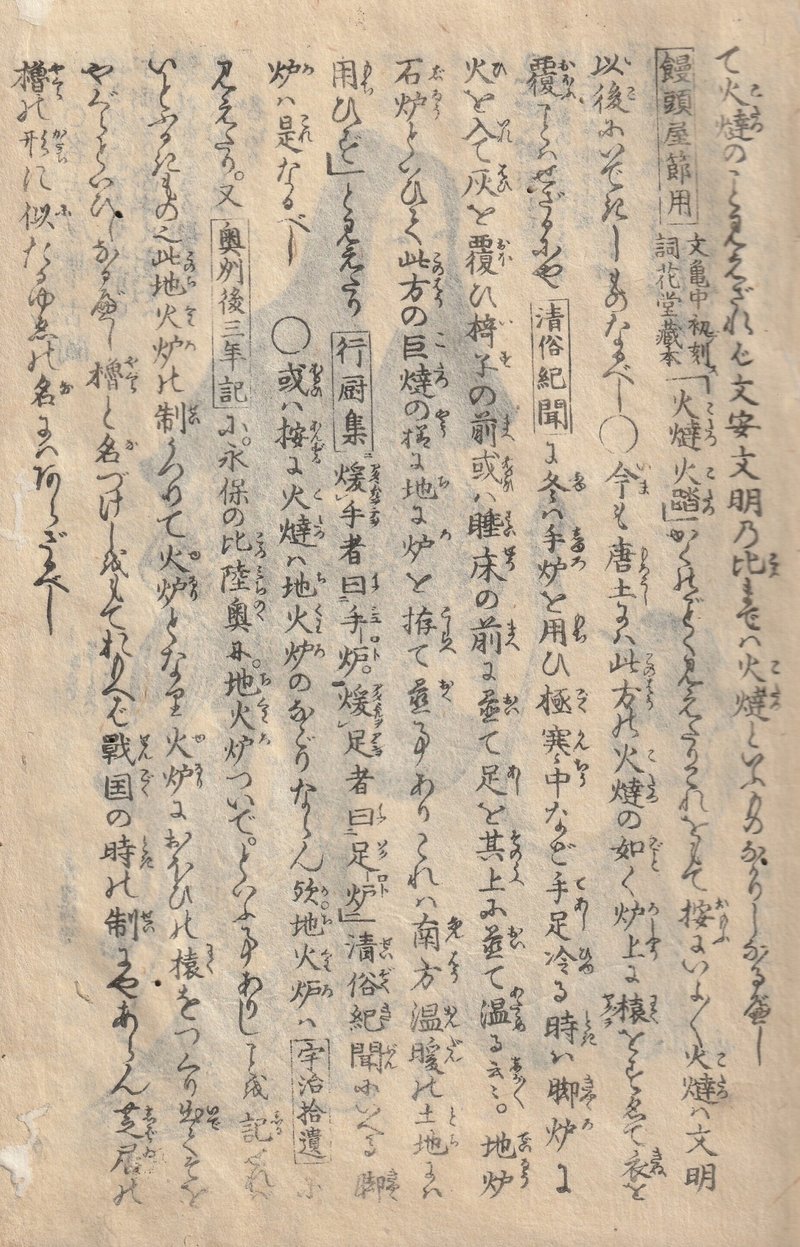 て火燵のこと見えざれば文安文明の比までは火燵といふものなかりしなるべし
饅頭屋節用 文亀中初刻 詞花堂蔵本 「火燵火踏」かくのごとく見えたりこれをもて按ふにいよ〳〵火燵は文明
以後にいできしものなるべし〇今も唐土には此方の火燵の如く炉上に榬をすゑて衣を
覆ことはせざるにや 清俗紀聞 に冬は手炉を用ひ極寒ミ中など手足冷る時は脚炉に
火を入て灰を覆ひ椅子の前或は睡床の前に置て足を其上に置て温る云々。地炉
石炉といひて此方の巨燵の様に地に炉を拵て置事ありこれは南方温暖の土地には
用ひず」と見えたり 行厨集 煖手者曰手炉。煖足者曰足炉」清俗紀聞にいへる脚
炉は是なるべし 〇或は按に火燵は地火炉のなごりならん歟地火炉は 宇治拾遺 に
見えたり。又 奥州後三年記 に。永保の比陸奥に。地火炉ついで。といふ事ありしことを記せれば
いとふるきもの也此地火炉の制うつりて火炉となり火炉におほひの榬をつくり出てそを
やぐらといひしなるべし櫓と名づけしをもておもへば戦国の時の制にやあらん芝居の
櫓の形に似たるゆゑの名にはあらざるべし